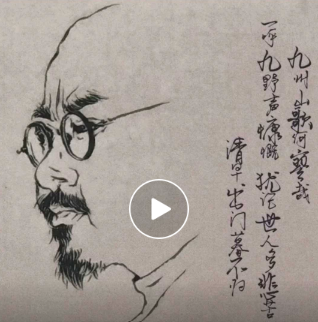 九州山歌何寥哉
一呼九野声慷慨 犹记世人多悲苦
清早出门暮不归